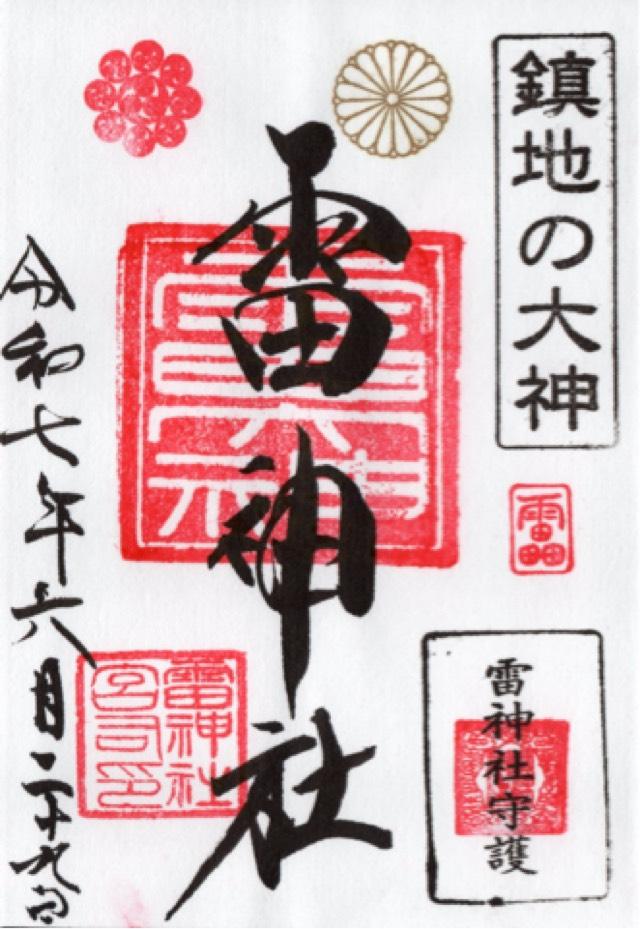 鎮地の大神
雷神社
雷神社守護
雷神社
宮司印
令和七年六月二十九日